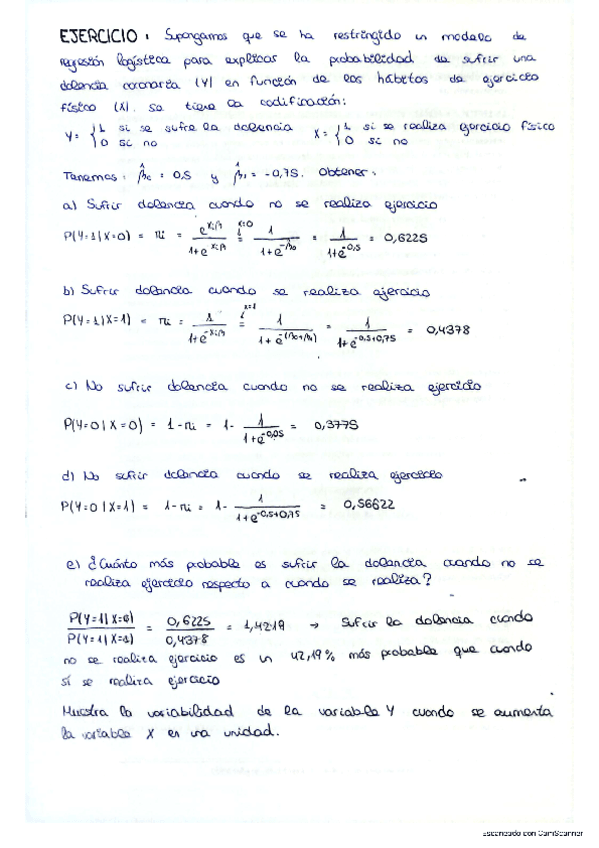 EJERCICIO: Supongamos que se ha restringido un modelo de
regresión logística para explicar la probabilidad de sufrir una
dolencia coronaria (Y) en función de los hábitos de ejercicio
físico (X). Se tiene la codificación:
Y = { 1 si se sufre la dolencia X = { 1 si se realiza ejercicio físico
0 si no 0 si no
Tenemos: β̂0 = 0,5 y β̂1 = -0,75. Obtener:
a) Sufrir dolencia cuando no se realiza ejercicio
P(Y=1|X=0) = πi = e^{xiβ} / (1+e^{xiβ}) =^{x=0} 1 / (1+e^{-β0}) = 1 / (1+e^{-0,5}) = 0,6225
b) Sufrir dolencia cuando se realiza ejercicio
P(Y=1|X=1) = πi = 1 / (1+e^{-xiβ}) =^{x=1} 1 / (1+e^{-(β0+β1)}) = 1 / (1+e^{-0,5+0,75}) = 0,4378
c) No sufrir dolencia cuando no se realiza ejercicio
P(Y=0|X=0) = 1-πi = 1- 1 / (1+e^{-0,05}) = 0,3775
d) No sufrir dolencia cuando se realiza ejercicio
P(Y=0|X=1) = 1-πi = 1- 1 / (1+e^{-0,5+0,75}) = 0,56622
e) ¿Cuánto más probable es sufrir la dolencia cuando no se
realiza ejercicio respecto a cuando se realiza?
P(Y=1|X=0) / P(Y=1|X=1) = 0,6225 / 0,4378 = 1,4219 → Sufrir la dolencia cuando
no se realiza ejercicio es un 42,19% más probable que cuando
sí se realiza ejercicio
Muestra la variabilidad de la variable Y cuando se aumenta
la variable X en una unidad.
Escaneado con CamScanner